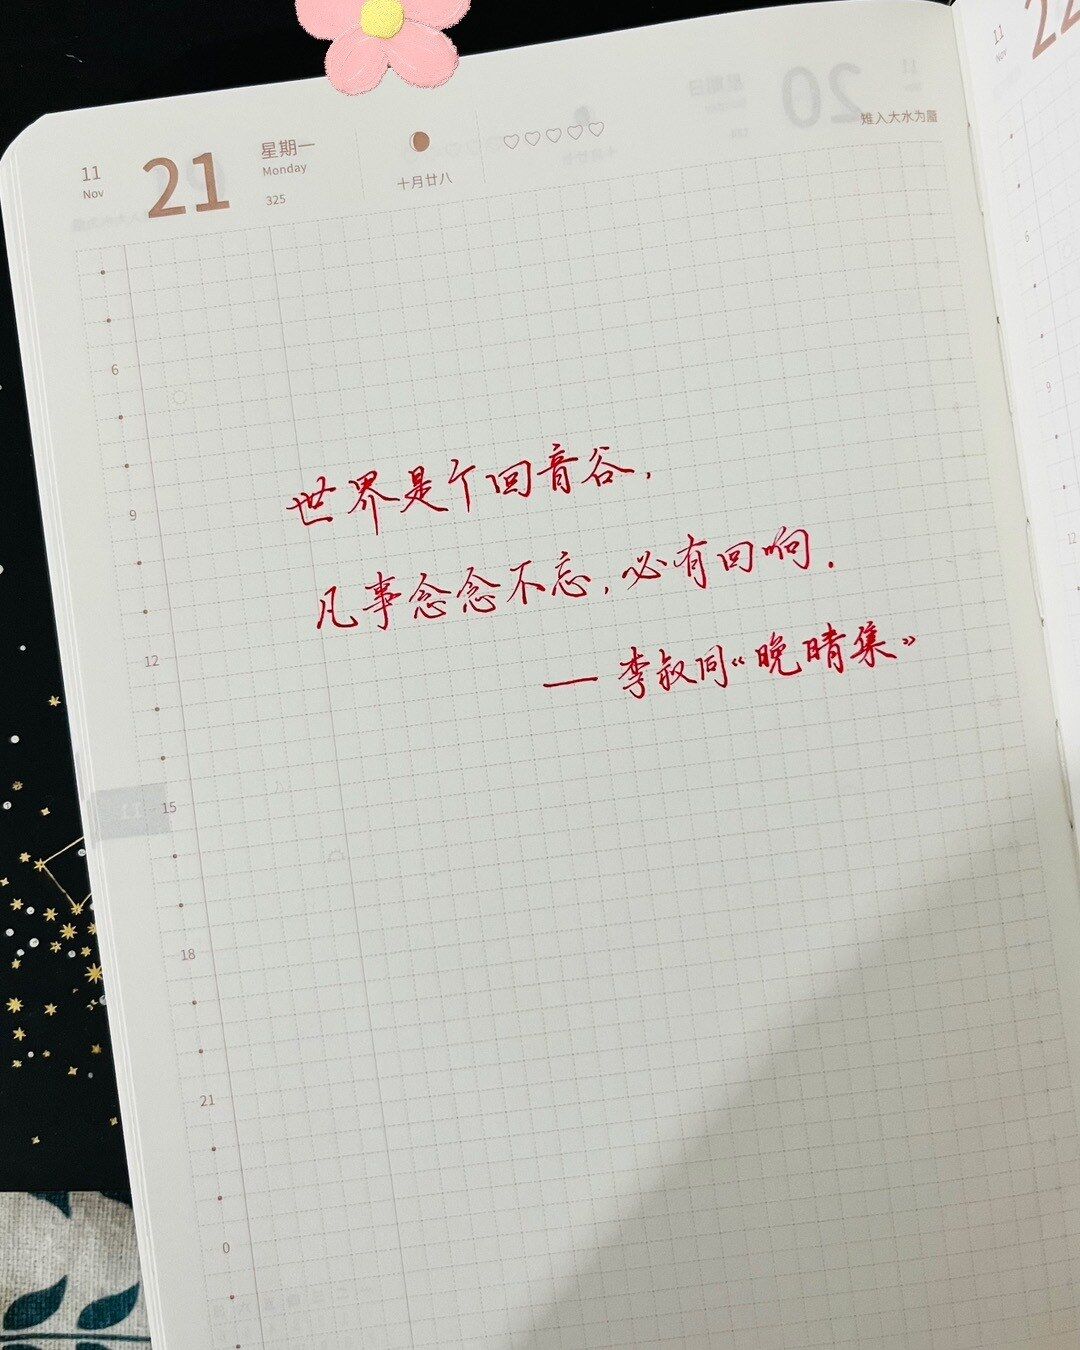 11
Nov
21
星期一
Monday
325
十月廿八
雉入大水为蜃
11
Nov
22
世界是个回音谷，
凡事念念不忘，必有回响．
— 李叔同《晚晴集》
6
9
12
15
18
21
0
6
9
12